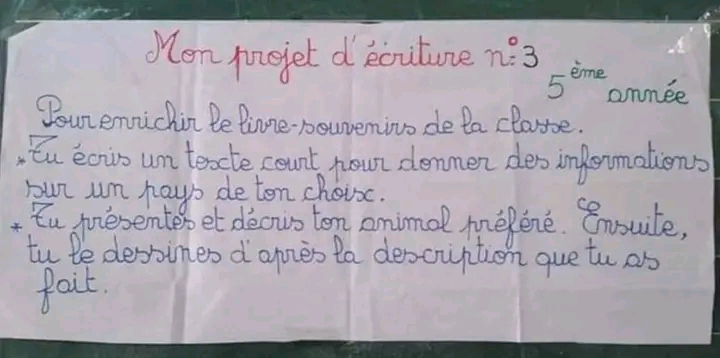 Mon projet d'écriture n:° 3
5 ème année
Pour enrichir le livre-souvenirs de la classe.
* Tu écris un texte court pour donner des informations
sur un pays de ton choix.
* Tu présentes et décris ton animal préféré. Ensuite,
tu le dessines d'après la description que tu as
fait.